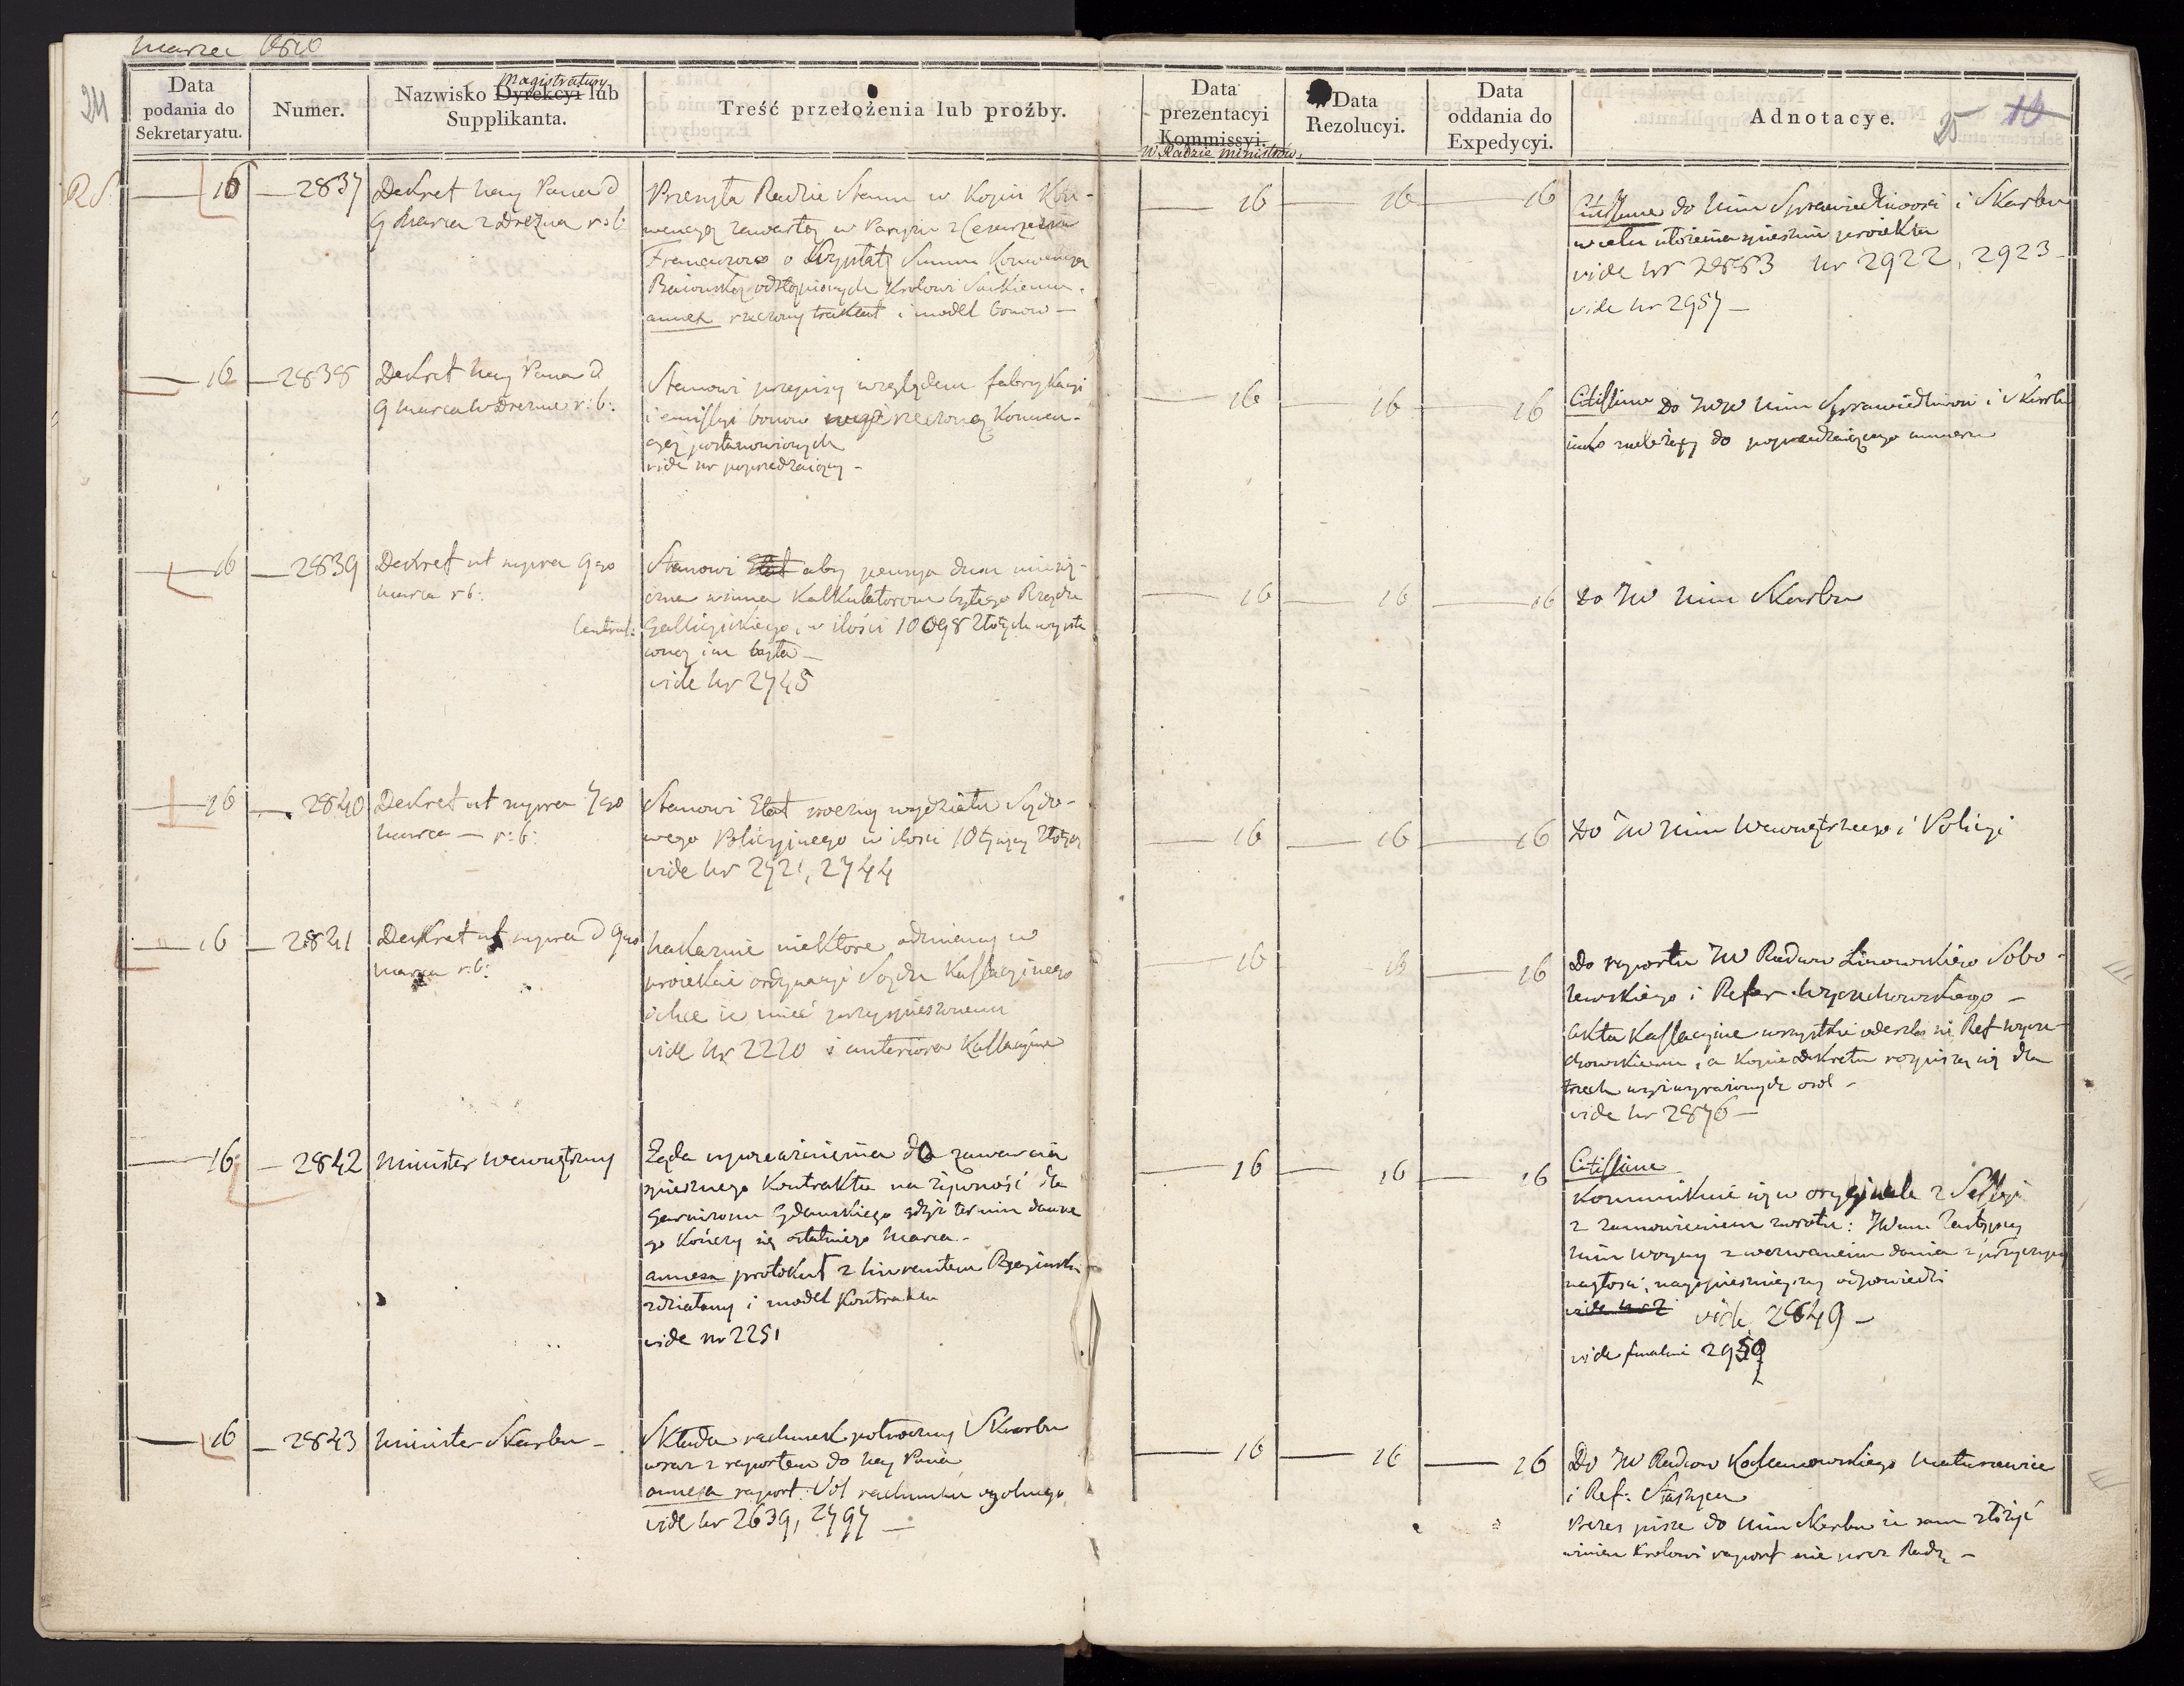 Marzec 1810
24
Data podania do Sekretaryatu.
Numer.
Nazwisko Dyrekcyi lub Supplikanta.
Magistratury
Treść przełożenia lub proźby.
Data prezentacyi Kommissyi.
w Radzie Ministrów
Data Rezolucyi.
Data oddania do Expedycyi.
Adnotacye.
25 10
RS.
16 2837 Dekret Nay Pana d
9 Marca z Drezna r: b
Przesyła Radzie Stanu w Kopii Kon-
wencyą zawartą w Paryżu z Cesarzem
Francuzow o Wypłatę Summ Konwencyą
Baiońską odstąpionych Krolowi Saskiemu.
annex rzeczony traktat i model bonow —
16 16 16
Citissime do Min Sprawiedliwości i Skarbu
w celu ułożenia spiesznie proiektu
vide Nr 2883 Nr 2922, 2923 -
vide Nr 2957 —
16 2838 Dekret Nay Pana d
9 Marca w Dreznie r: b:
Stanowi przepisy względem fabrykacyi
i emissyi bonow rzeczoną Konwen-
cyą postanowionych
vide nr poprzedzaiący -
16 16 16
Citissime do JWW Min Sprawiedliwości i Skarbu
iako należący do poprzedzaiącego numeru
16 2839 Dekret ut supra 9go
Marca r b:
Stanowi Etat aby pensya dwu miesię-
czna winna Kalkulatorom byłego Rządu
Central: Gallicyiskiego, w ilości 10098 złotych wypła
coną im była —
vide Nr 2745
16 16 16
Do JW Min Skarbu
16 2840 Dekret ut supra 7go
Marca — r: b:
Stanowi Etat roczny wydziału Sądo-
wego Policyinego w ilości 10 tysięcy złotych
vide Nr 2721, 2744
16 16 16
Do JW Min Wewnętrznego i Policyi
16 2841 Dekret ut supra d 9go
Marca r: b:
Nakazuie niektore odmiany w
proiekcie ordynacyi Sądu Kassacyinego
i chce ie mieć przyspieszonemi
vide Nr 2220 i anteriora Kassacyine
16 16 16
Do raportu JW Radzcow Linowskiego Sobo-
lewskiego i Refer. Wyczechowskiego —
akta Kassacyine wszystkie odesłać się Ref Wycze-
chowskiemu, a Kopie Dekretu rozpiszą się dla
trzech wyż wyrażonych osob -
vide Nr 2876 —
16 2842 Minister Wewnętrzny
Żąda upoważnienia do zawarcia
spiesznego Kontraktu na żywność dla
Garnizonu Gdańskiego gdyż termin dawne
go kończy się ostatniego Marca. -
annexa protokuł z liwerantem
zdziałany i model Kontraktu
vide nr 2251
16 16 16
Citissime
Kommunikuie się w oryginale z Sessyi
z zamowieniem zwrotu: JWmu Zastępcy
Min Woyny z wezwaniem dania z przyczyny
nagłości, nayspieszniejszey odpowiedzi
vide nr 2 vide 2849 —
vide finalne 2959
16 2843 Minister Skarbu -
Składa rachunek połroczny Skarbu
wraz z raportem do Nay Pana
annexa raport. Vol rachunku ogolnego
vide Nr 2639, 2797 —
16 16 16
Do JW Radzcow Kochanowskiego Matusewica
i Ref: Staszyca
Prezes pisze do Min Skarbu że sam złożyć
winien Krolowi raport nie przez Radę -